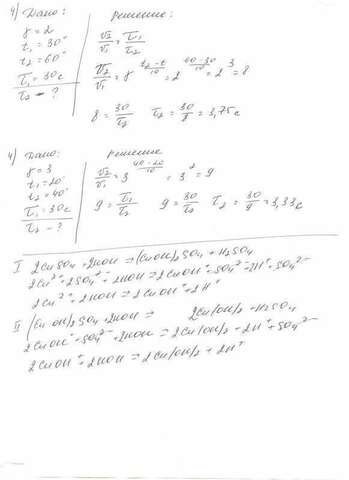 4) Дано: Решение:
γ = 2
t₁ = 30°
t₂ = 60°
τ₁ = 30с
τ₂ - ?
v₂/v₁ = τ₁/τ₂
v₂/v₁ = γ^((t₂-t₁)/10) = 2^((60-30)/10) = 2³ = 8
8 = 30/τ₂ τ₂ = 30/8 = 3,75с
4) Дано: Решение
γ = 3
t₁ = 20°
t₂ = 40°
τ₁ = 30с
τ₂ - ?
v₂/v₁ = 3^((40-20)/10) = 3² = 9
9 = τ₁/τ₂ 9 = 30/τ₂ τ₂ = 30/9 = 3,33с
I 2CuSO₄ + 2HOH ⇒ (CuOH)₂SO₄ + H₂SO₄
2Cu²⁺ + 2SO₄²⁻ + 2HOH ⇒ 2CuOH⁺ + SO₄²⁻ + 2H⁺ + SO₄²⁻
2Cu²⁺ + 2HOH ⇒ 2CuOH⁺ + 2H⁺
II (CuOH)₂SO₄ + 2HOH ⇒ 2Cu(OH)₂ + H₂SO₄
2CuOH⁺ + SO₄²⁻ + 2HOH ⇒ 2Cu(OH)₂ + 2H⁺ + SO₄²⁻
2CuOH⁺ + 2HOH ⇒ 2Cu(OH)₂ + 2H⁺